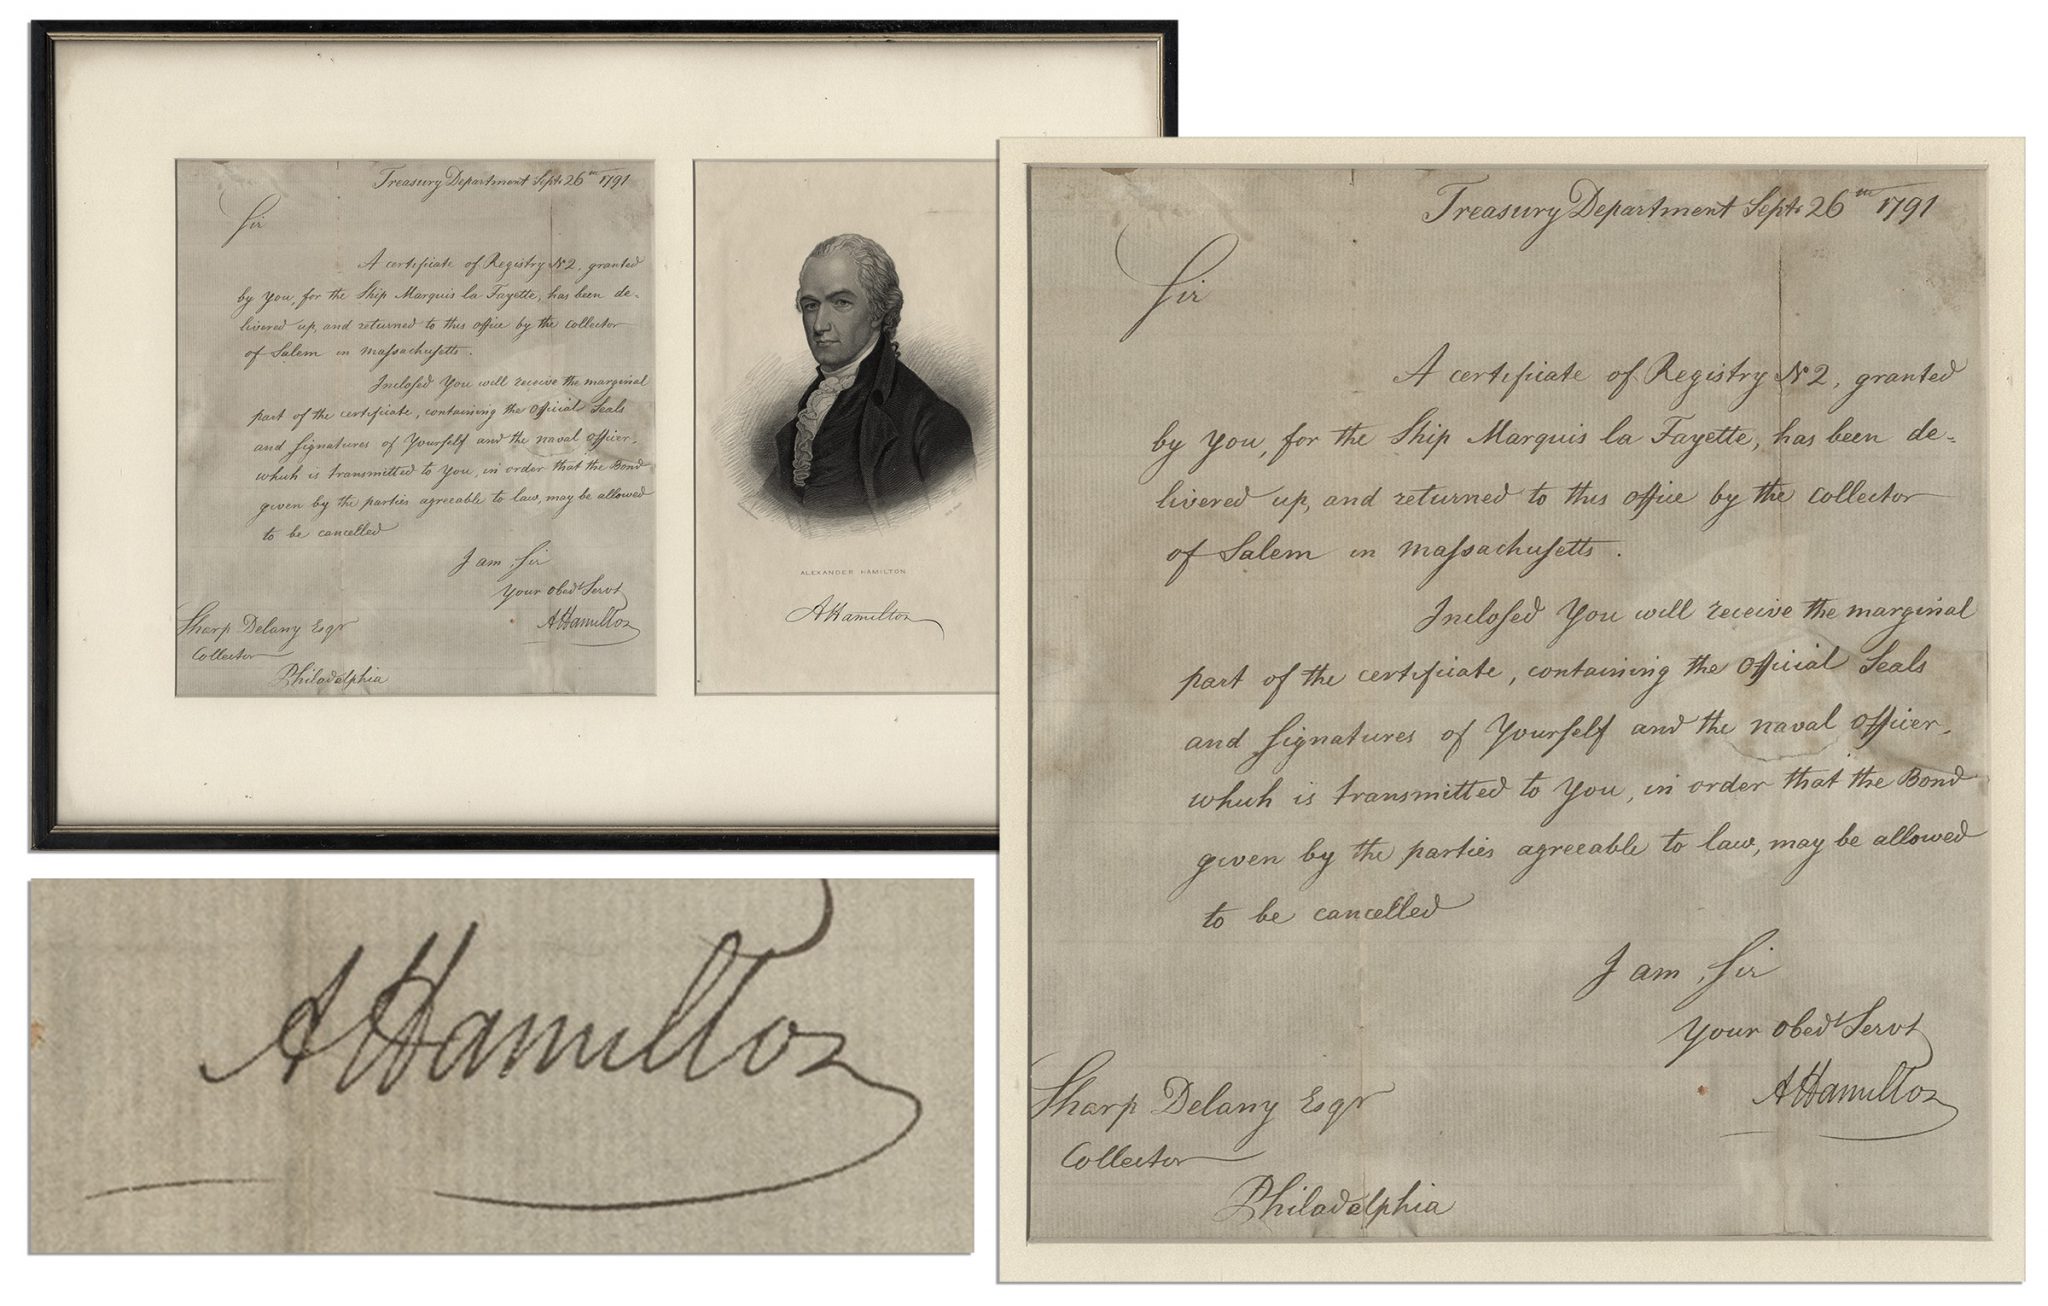 Treasury Department Septr 26th 1791
Sir
A certificate of Registry No 2, granted
by You, for the Ship Marquis la Fayette, has been de=
livered up, and returned to this office by the Collector
of Salem in Massachusetts.
Inclosed You will receive the marginal
part of the certificate, containing the Official Seals
and Signatures of Yourself and the naval Officer,
which is transmitted to You, in order that the Bond
given by the parties agreeable to law, may be allowed
to be cancelled
I am, Sir
Your Obedt Servt
AHamilton
Sharp Delany Esqr
Collector
Philadelphia
ALEXANDER HAMILTON
AHamilton
Treasury Department Septr 26th 1791
Sir
A certificate of Registry No 2, granted
by You, for the Ship Marquis la Fayette, has been de=
livered up, and returned to this office by the Collector
of Salem in Massachusetts.
Inclosed You will receive the marginal
part of the certificate, containing the Official Seals
and Signatures of Yourself and the naval Officer,
which is transmitted to You, in order that the Bond
given by the parties agreeable to law, may be allowed
to be cancelled
I am, Sir
Your Obedt Servt
AHamilton
Sharp Delany Esqr
Collector
Philadelphia
AHamilton